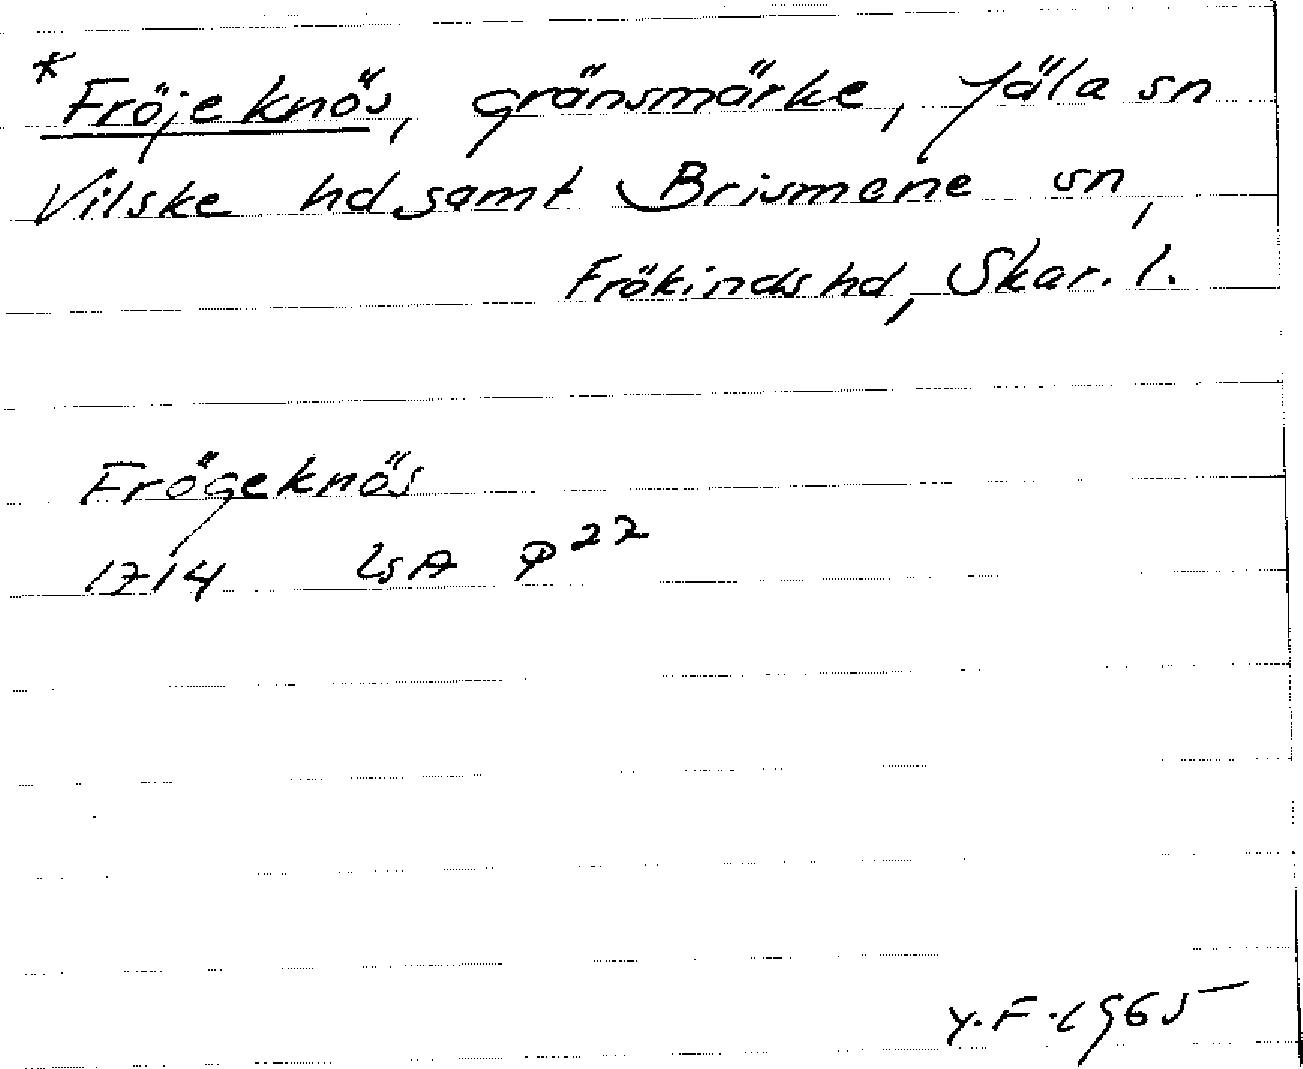 *Fröjeknös, gränsmärke, Jäla sn
Vilske hd samt Brismene sn,
Frökinds hd, Skar. l.
Frögeknös
1714 LSA P 22
Y.F. 1965